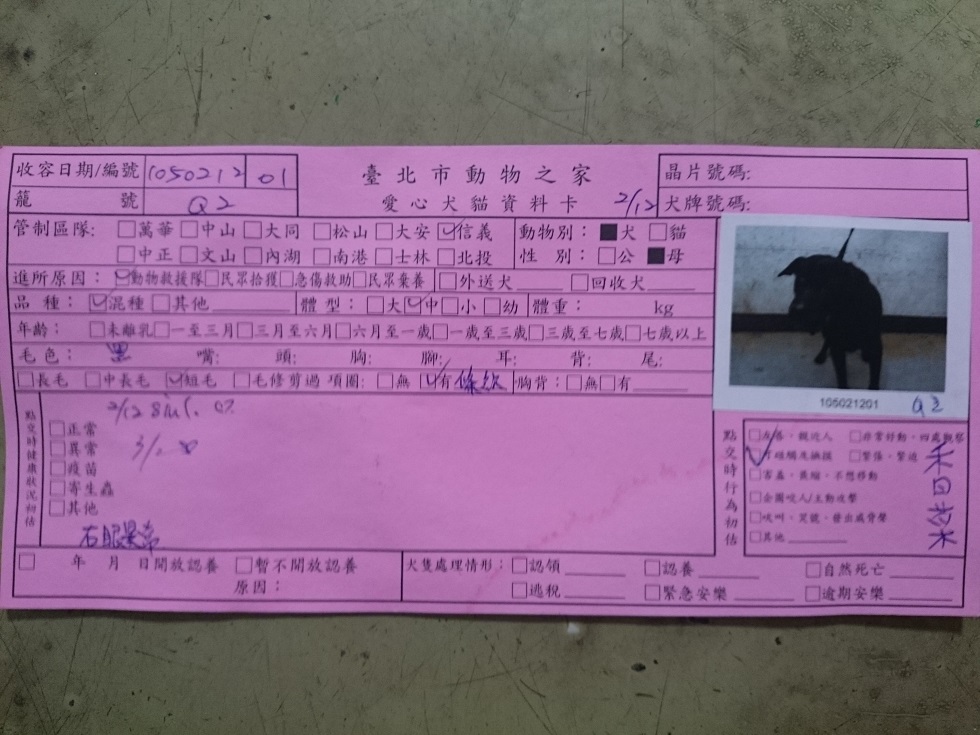 收容日期/編號 1050212 01
臺北市動物之家
晶片號碼:
籠 號 Q2
愛心犬貓資料卡 2/12
犬牌號碼:
管制區隊: □萬華 □中山 □大同 □松山 □大安 ☑信義
動物別: ■犬 □貓
□中正 □文山 □內湖 □南港 □士林 □北投
性 別: □公 ■母
進所原因: ☑動物救援隊 □民眾拾獲 □急傷救助 □民眾棄養 □外送犬 □回收犬
品 種: ☑混種 □其他 體 型: □大 ☑中 □小 □幼 體重: kg
年齡: □未離乳 □一至三月 □三月至六月 □六月至一歲 □一歲至三歲 □三歲至七歲 □七歲以上
毛色: 黑 嘴: 頭: 胸: 腳: 耳: 背: 尾:
□長毛 □中長毛 ☑短毛 □毛修剪過 項圈: □無 ☑有 條紋 胸背: □無 □有
105021201 Q2
點交時健康狀況初估
2/12
□正常
□異常
3/2
□疫苗
□寄生蟲
□其他
右眼異常
點交時行為初估
□友善、親近人 □非常好動、四處觀察
☑可碰觸及撫摸 □緊張、緊迫
□害羞、畏縮、不想移動
□企圖咬人/主動攻擊
□吠叫、低鳴、發出威脅聲
□其他
□ 年 月 日開放認養 □暫不開放認養
原因:
犬隻處理情形: □認領 □認養 □自然死亡
□逃脫 □緊急安樂 □逾期安樂